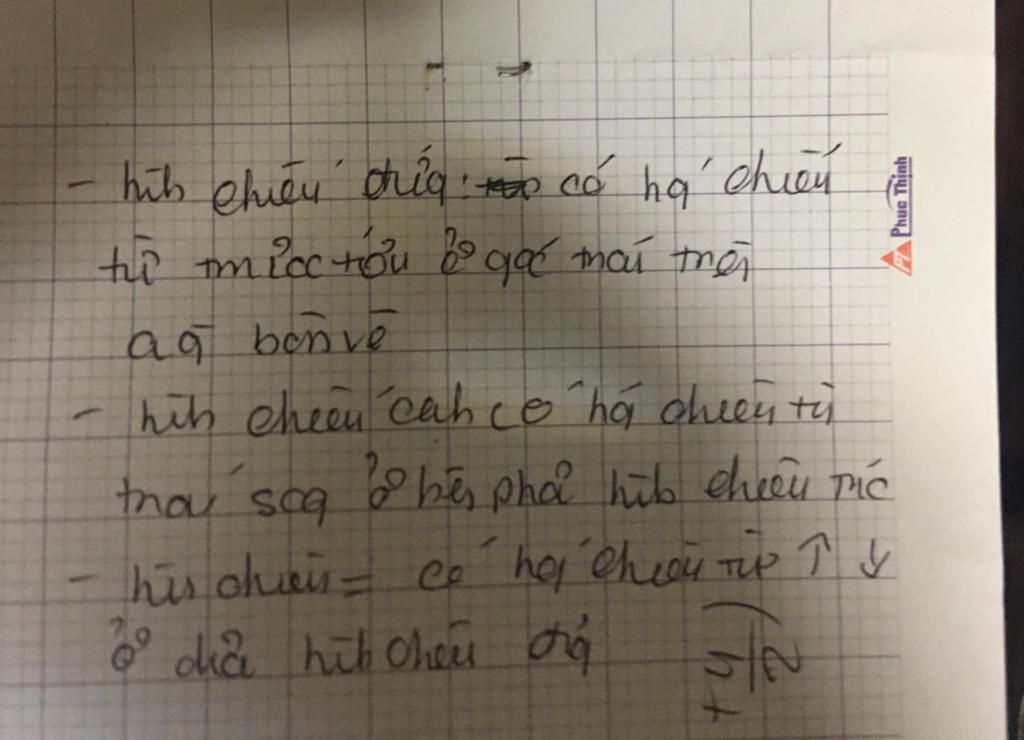 - hìh chiếu đứg: có hg' chiếu
từ trước tới ở góc trái trên
của bản vẽ
- hìh chiếu cạh có hg' chiếu từ
trái sag ở bên phải hìh chiếu
- hìh chiếu = có hg' chiếu từ ↑ ↓
ở dưới hìh chiếu đứg
Phuc Thinh
PT